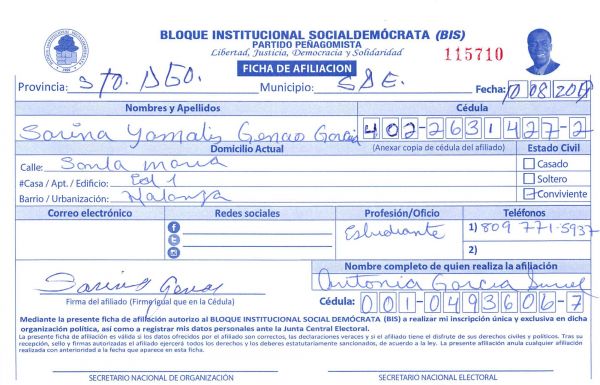 BLOQUE INSTITUCIONAL SOCIALDEMÓCRATA (BIS)
PARTIDO PEÑAGOMISTA
Libertad, Justicia, Democracia y Solidaridad
115710
FICHA DE AFILIACION
Provincia: STO. DGO. Municipio: SDE. Fecha: 10 08 201
Nombres y Apellidos Cédula
Sarina Yamalis Gencao Garcia 402-2631427-2
Domicilio Actual (Anexar copia de cédula del afiliado) Estado Civil
Calle: Santa Maria Casado
#Casa / Apt. / Edificio: Ed 1 Soltero
Barrio / Urbanización: Matanza Conviviente
Correo electrónico Redes sociales Profesión/Oficio Teléfonos
Estudiante 1) 809 771-5937
2)
Nombre completo de quien realiza la afiliación
Antonia Garcia
Firma del afiliado (Firme igual que en la Cédula) Cédula: 001-0493606-7
Mediante la presente ficha de afiliado autorizo al BLOQUE INSTITUCIONAL SOCIAL DEMÓCRATA (BIS) a realizar mi inscripción única y exclusiva en dicha
organización política, así como a registrar mis datos personales ante la Junta Central Electoral.
La presente ficha de afiliación es válida si los datos ofrecidos por el afiliado son correctos, las declaraciones veraces y si el afiliado tiene el disfrute de sus derechos civiles y políticos. Tras su
recepción, sello y firmas autorizadas el afiliado ejercerá todos los derechos y los deberes estatutariamente sancionados, de acuerdo a la ley. La presente afiliación anula cualquier afiliación
realizada con anterioridad a la fecha que aparece en esta ficha.
SECRETARIO NACIONAL DE ORGANIZACIÓN SECRETARIO NACIONAL ELECTORAL